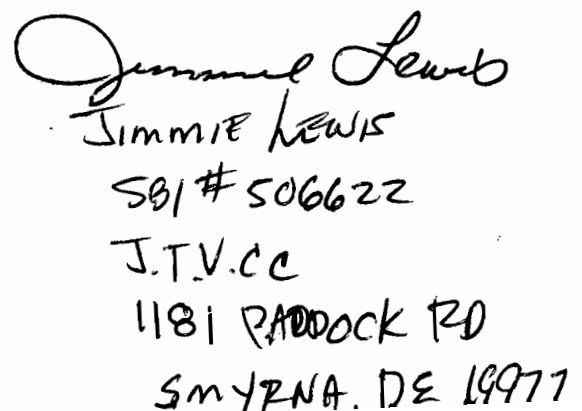 Jimmie Lewis
JIMMIE LEWIS
SBI # 506622
J.T.V.CC
1181 PADDOCK RD
SMYRNA, DE 19977